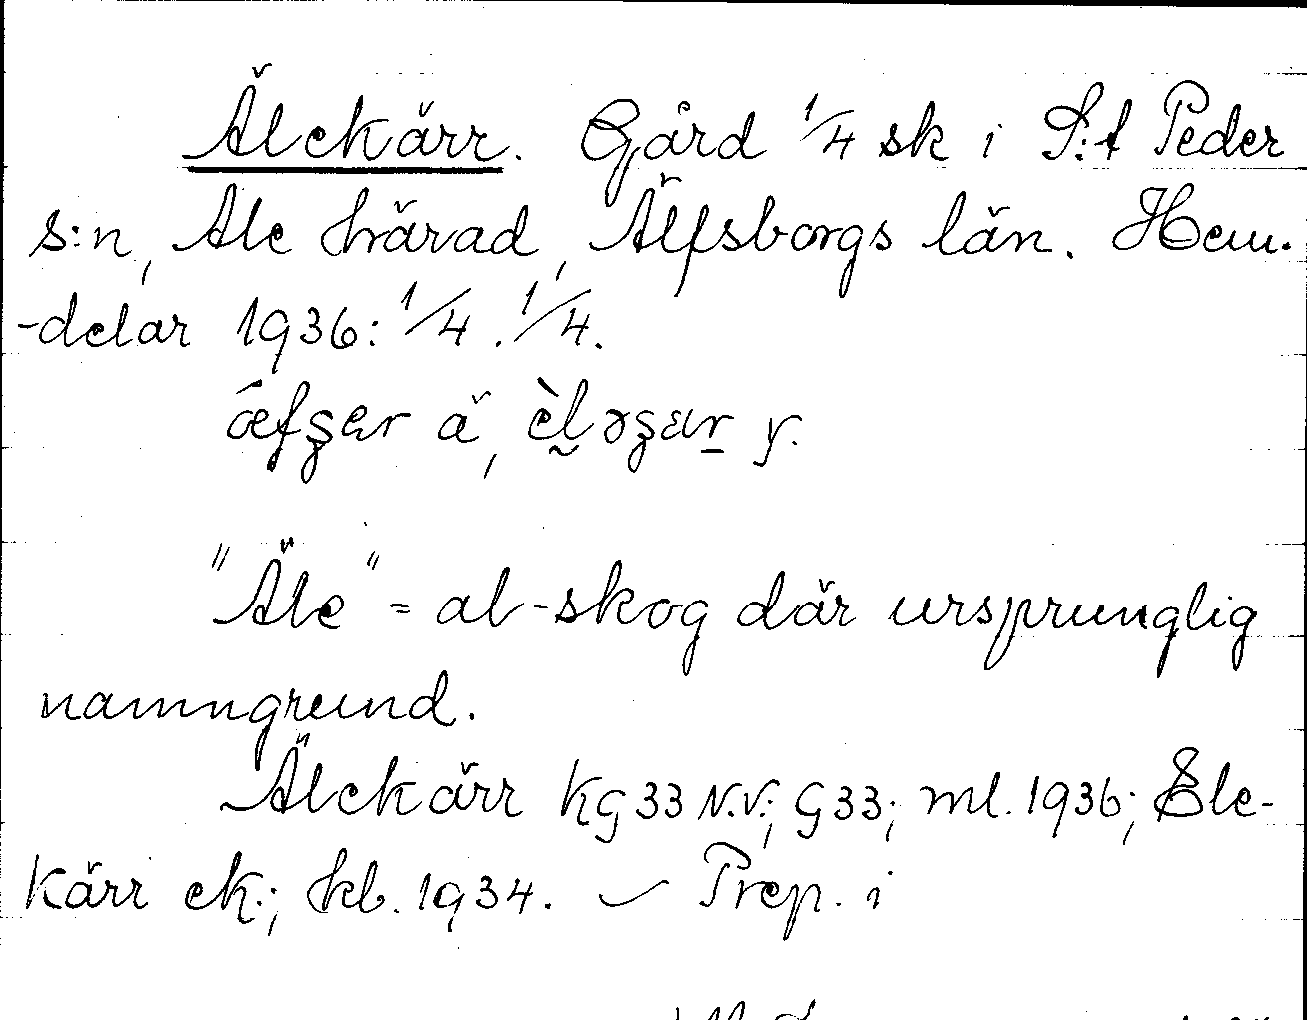 Älekärr. Gård 1/4 sk i S:t Peder
s:n, Ale härad, Älfsborgs län. Hem-
-delar 1936: 1/4. 1/4.
ä,
"Äle" = al-skog där ursprunglig
namngrund.
Älekärr KG33 N.V.; G33; ml. 1936; Ele-
kärr ek.; kb. 1934. – Prep. i